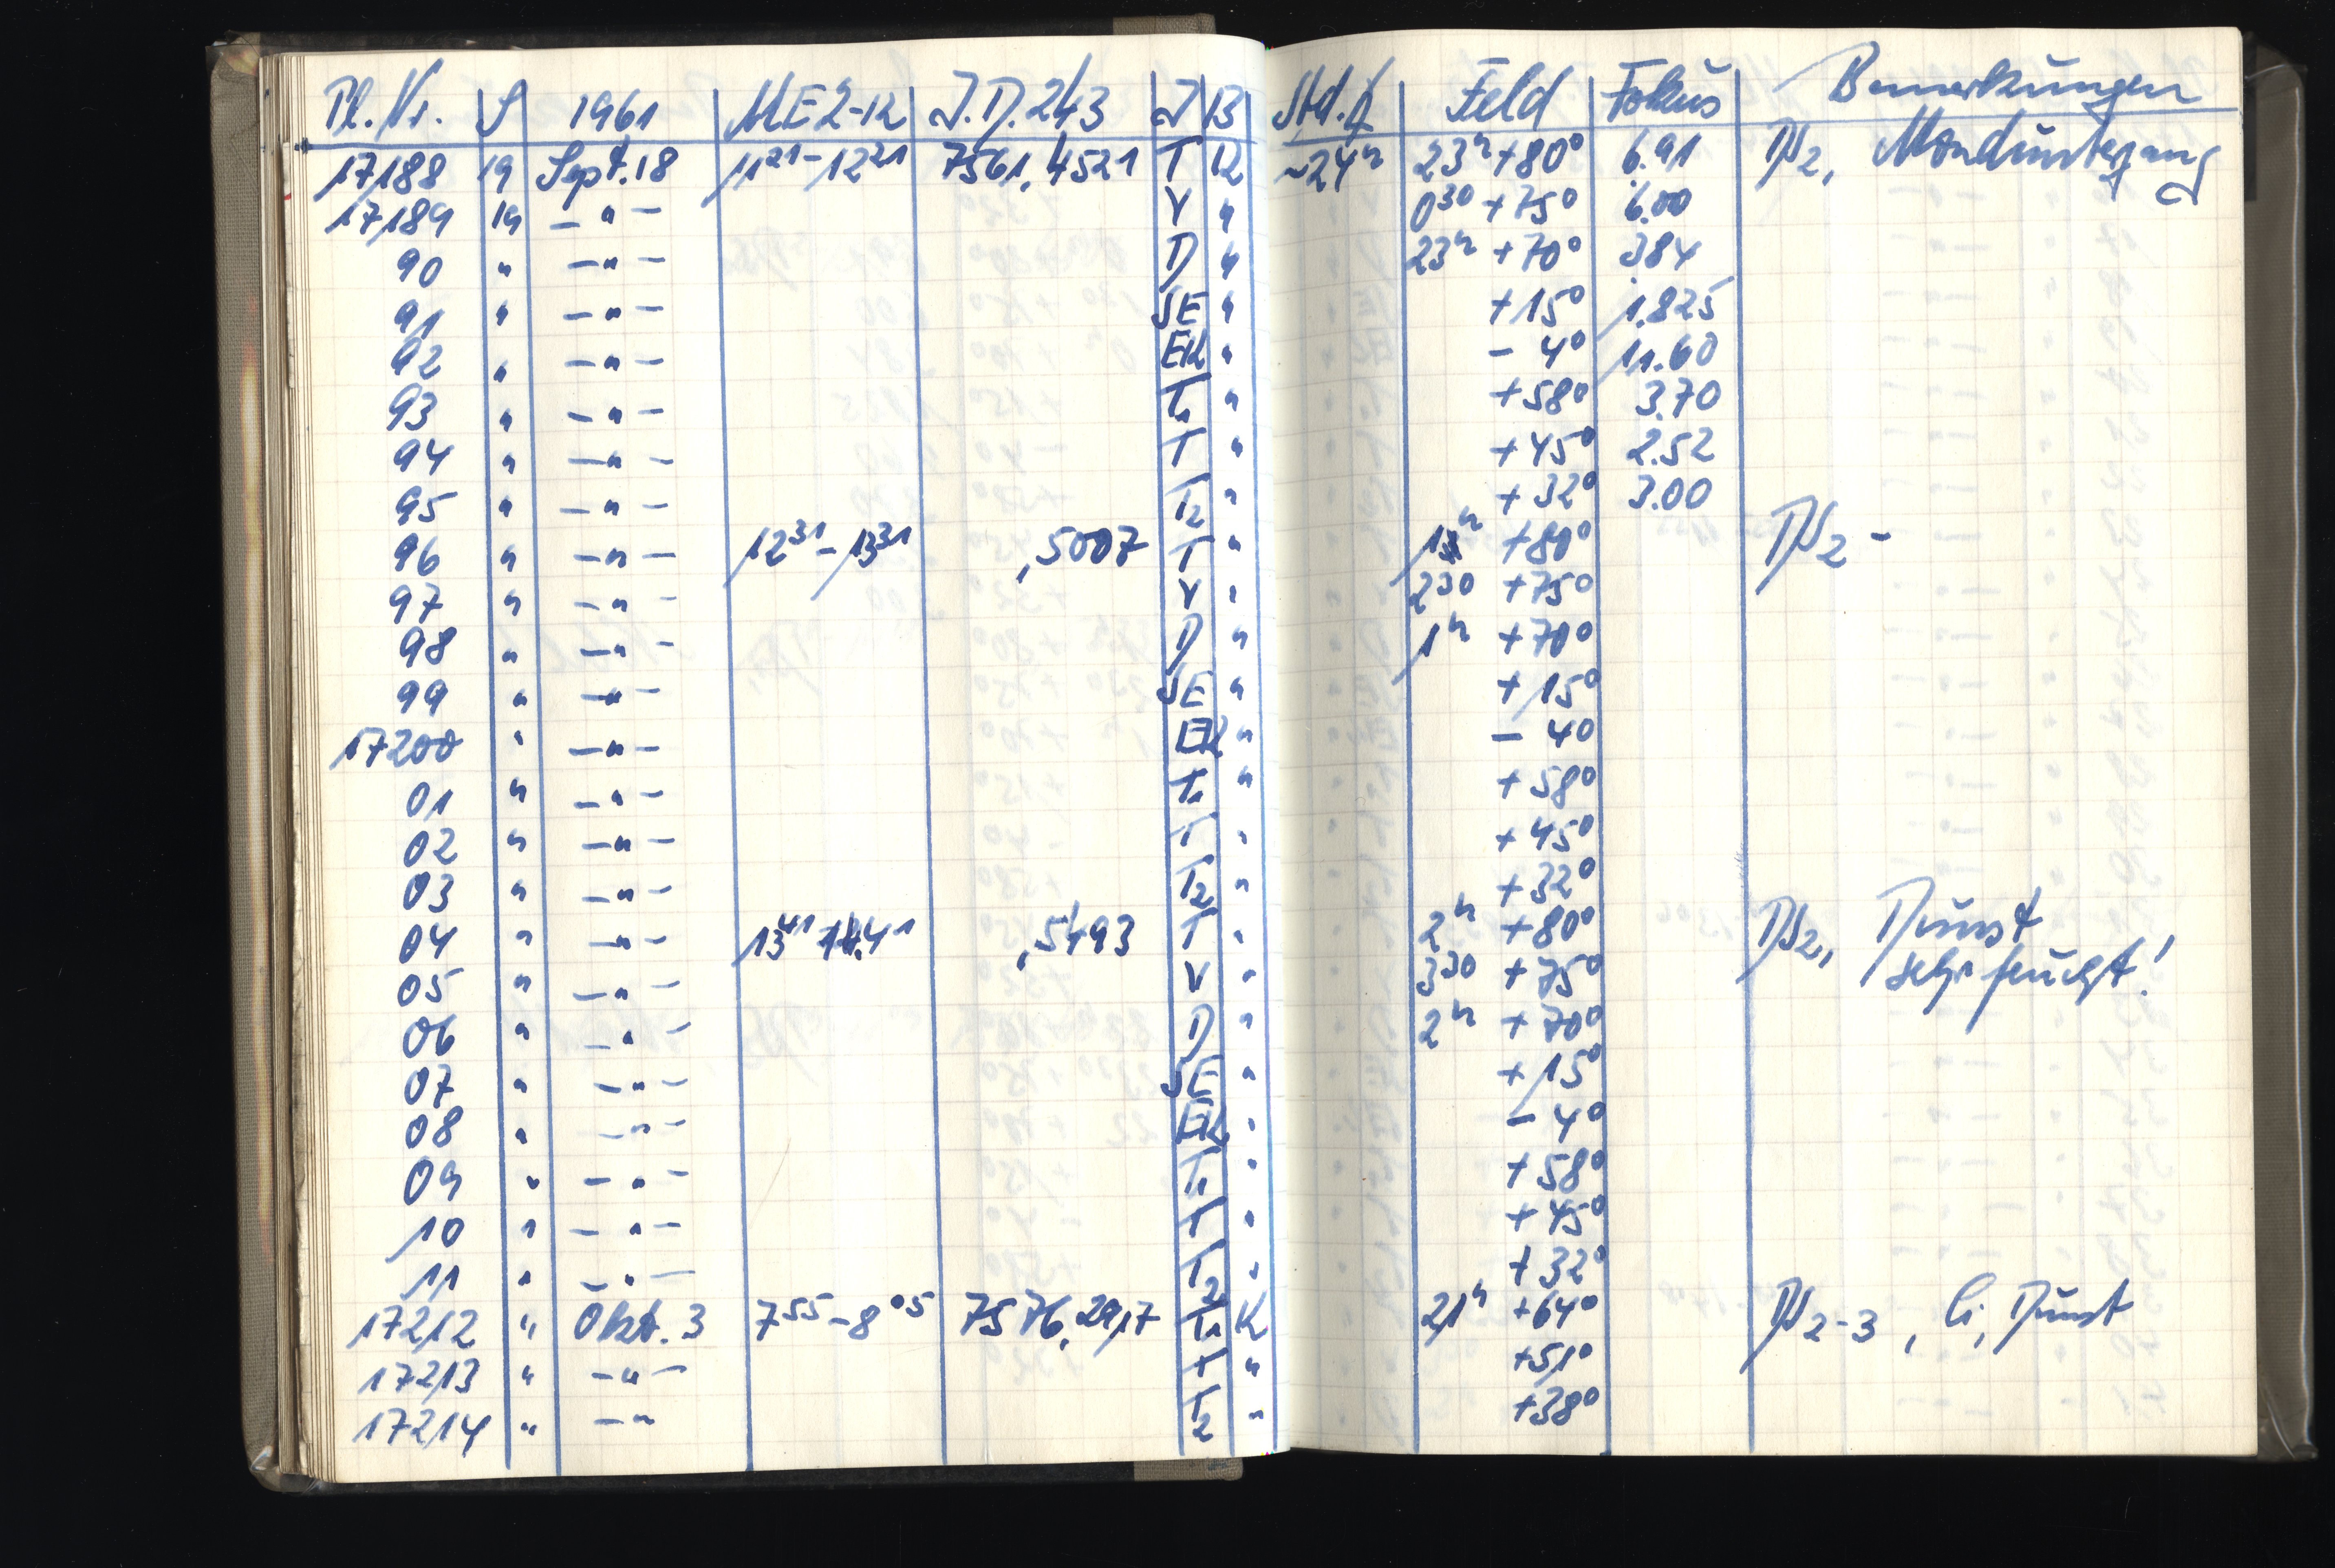 Pl. Nr. S 1961 MEZ-12 J.D. 243 J B Std.∢ Feld Fokus Bemerkungen
17188 19 Sept. 18 11²¹-12²¹ 7561,4521 T 12 ~24ʰ 23ʰ +80° 6.91 Ds2, Monduntergang
17189 19 -"- V " 0³⁰ +75° 6.00
90 " -"- D " 23ʰ +70° 3.84
91 " -"- SE " +15° 1.825
92 " -"- EK " -4° 11.60
93 " -"- T1 " +58° 3.70
94 " -"- T " +45° 2.52
95 " -"- T2 " +32° 3.00
96 " -"- 12³¹-13³¹ ,5007 T " 1ʰ +80° Ds2-
97 " -"- V " 2³⁰ +75°
98 " -"- D " 1ʰ +70°
99 " -"- SE " +15°
17200 " -"- EK " -4°
01 " -"- T1 " +58°
02 " -"- T " +45°
03 " -"- T2 " +32°
04 " -"- 13⁴¹-14⁴¹ ,5493 T " 2ʰ +80° Ds2, Dunst
05 " -"- V " 3³⁰ +75° sehr feucht!
06 " -"- D " 2ʰ +70°
07 " -"- SE " +15°
08 " -"- EK " -4°
09 " -"- T1 " +58°
10 " -"- T " +45°
11 " -"- T2 " +32°
17212 " Okt. 3 7⁵⁵-8⁰⁵ 7576,2917 T1 K 21ʰ +64° Ds2-3, Ci, Dunst
17213 " -"- T " +51°
17214 " -" T2 " +38°